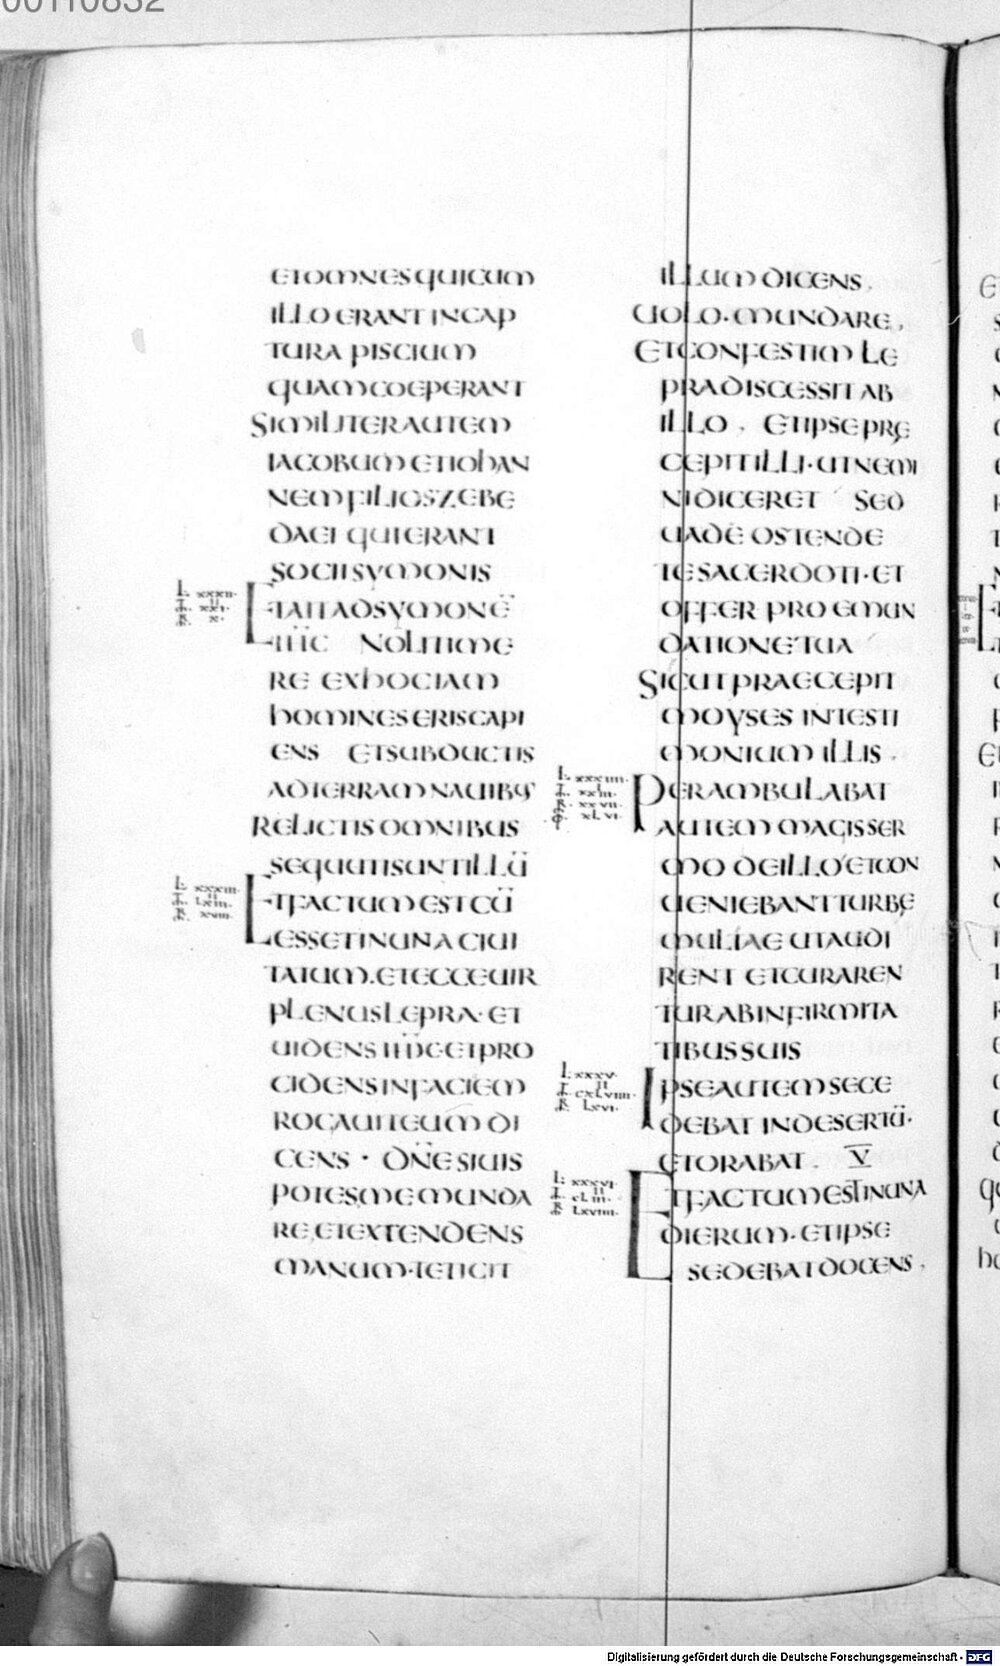 00110832
ETOMNESQUICUM
ILLOERANTINCAP
TURAPISCIUM
QUAMCOEPERANT
SIMILITERAUTEM
IACOBUMETIOHAN
NEMFILIOSZEBE
DAEI QUIERANT
SOCIISYMONIS
L XXXII
II
XXI
X
ETAITADSYMONĒ
IH̅C NOLITIME
RE EXHOCIAM
HOMINESERISCAPI
ENS ETSUBDUCTIS
ADTERRAMNAUIBꝰ
RELICTISOMNIBUS
SEQUUTISUNTILLŪ
L XXXIII
II
LXIII
XVIII
ETFACTUMESTCŪ
ESSETINUNACIUI
TATUM·ETECCEUIR
PLENUSLEPRA·ET
UIDENSIH̅C·ETPRO
CIDENSINFACIEM
ROGAUITEUMDI
CENS · DN̅ESIUIS
POTESMEMUNDA
RE ETEXTENDENS
MANUM·TETIGIT
ILLUMDICENS,
UOLO·MUNDARE,
ETCONFESTIM LE
PRADISCESSITAB
ILLO, ETIPSEPRĘ
CEPITILLI·UTNEMI
NIDICERET SED
UADE OSTENDE
TESACERDOTI·ET
OFFER PROEMUN
DATIONETUA
SICUTPRAECEPIT
MOYSES INTESTI
MONIUMILLIS,
L XXXIIII
I
XXIII
XXVII
XLVI
PERAMBULABAT
AUTEM MAGISSER
MO DEILLO ETCON
UENIEBANTTURBĘ
MULTAE UTAUDI
RENT ETCURAREN
TURABINFIRMITA
TIBUSSUIS
L XXXV
II
CXLVIIII
LXVI
IPSEAUTEMSECE
DEBAT INDESERTŪ·
ETORABAT. V̅
L XXXVI
II
CLIII
LXVIIII
ETFACTUMESTINUNA
DIERUM·ETIPSE
SEDEBATDOCENS,
Digitalisierung gefördert durch die Deutsche Forschungsgemeinschaft - DFG